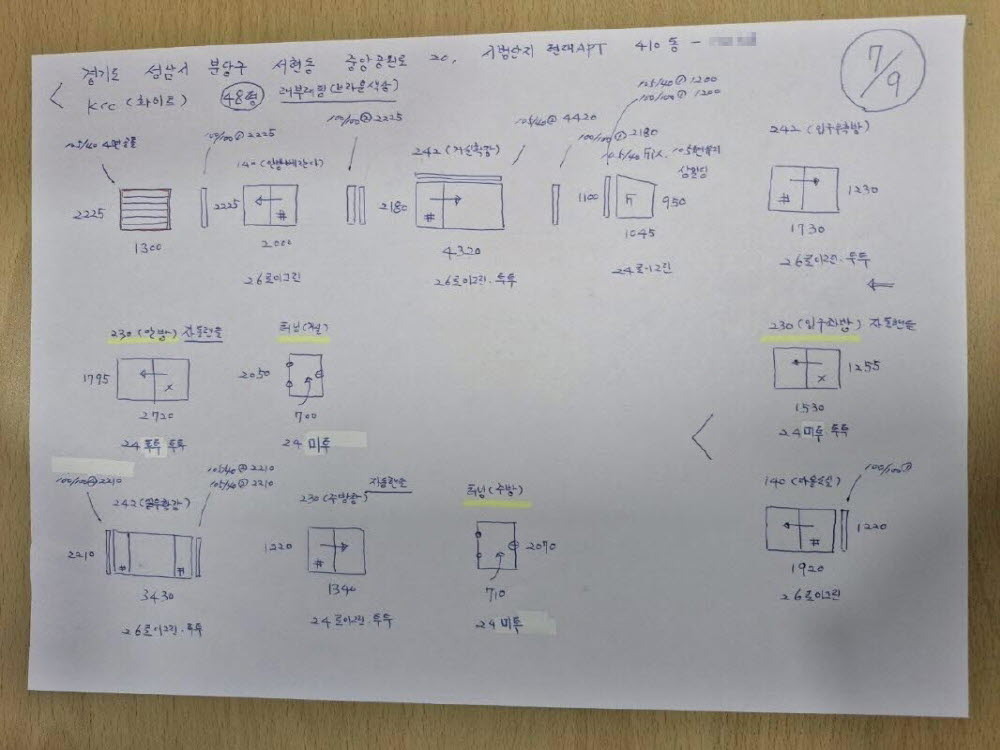 경기도 성남시 분당구 서현동 중앙공원로 20, 시범단지 현대APT 410동 -
7/9
KCC (화이트) 48평 래부래핑(브라운색상)
105/40 4면
2225
1300
100/100@2225
140 (안방베란다)
2225
2000
26로이그린
100/100@2225
242 (거실확장)
105/40@4420
2180
4320
26로이그린·투투
100/100@2180
105/40@1200
100/100@1200
105/40 fix.
1100
950
1045
24로이그린
242 (입구우측방)
1230
1730
26로이그린·투투
230 (안방) 자동핸들
1795
2720
24 투투
터닝(철)
2050
700
24 미투
230 (입구좌측방) 자동핸들
1255
1530
24미투·투투
100/100@2210
105/40@2210
105/40@2210
242
2210
3430
26로이그린·투투
자동핸들
230 (주방창)
1220
1340
24로이그린·투투
터닝 (주방)
2070
710
24 미투
100/100@
140
1220
1920
26로이그린